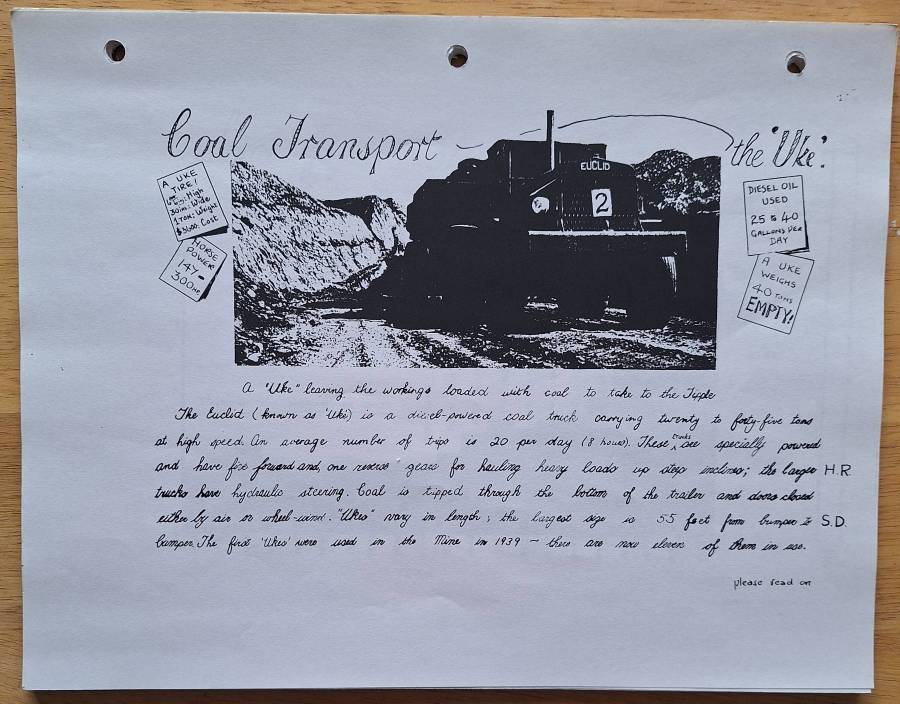 Coal Transport - the 'Uke'.
A UKE
TIRE!
6ft High
30ins. Wide
1 Ton: Weight
Cost
HORSE
POWER
147-
300HP
EUCLID
2
DIESEL OIL
USED
25 to 40
GALLONS PER
DAY
A UKE
WEIGHS
40 TONS
EMPTY!
A "Uke" leaving the workings loaded with coal to take to the Tipple
The Euclid (known as 'Uke') is a diesel-powered coal truck carrying twenty to forty-five tons
at high speed. An average number of trips is 20 per day (8 hours). These trucks are specially powered
and have five forward and, one reverse gears for hauling heavy loads up steep inclines; the larger H.R.
trucks have hydraulic steering. Coal is tipped through the bottom of the trailer and doors closed
either by air or wheel-wind. "Ukes" vary in length; the largest size is 55 feet from bumper to S.D.
bumper. The first 'Ukes' were used in the Mine in 1939 - there are now eleven of them in use.
please read on